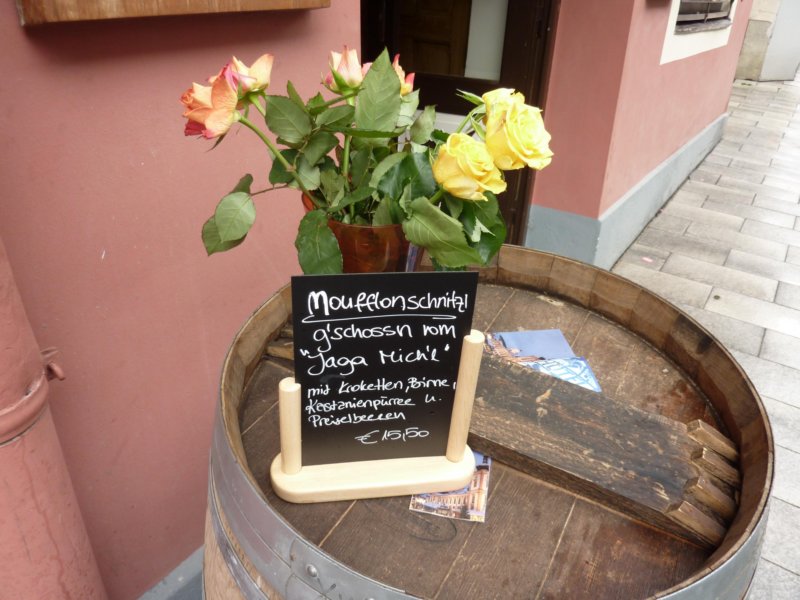 Moufflonschnitzl
g'schossn vom
"Jaga Mich'l"
mit Kroketten, Birne,
Kastanienpürree u.
Preiselbeeren
€ 15,50